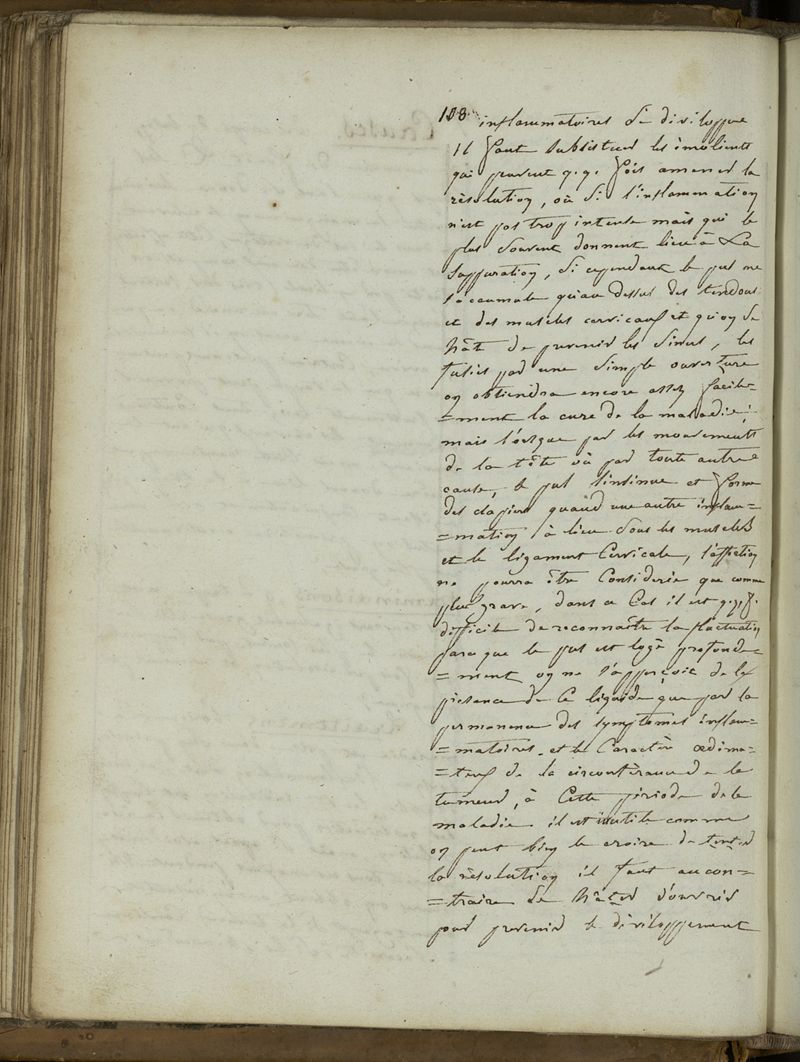 108.
inflammatoires se developpe
il faut substituer les émolients
qui peuvent q.q. fois amener la
résolution, où si l'inflammation
n'est pas trop intense mais qui le
plus souvent donnent lieu à la
suppuration, si cependant le pus ne
s'accumule qu'au dessus des tendons
et des muscles cervicaux et qu'on se
hât de prevenir les sinus, les
fusées par une simple ouverture
on obtiendra encore assez facile=
=ment la cure de la maladie;
mais lorsque par les mouvements
de la tête où par toute autre
cause, le pus s'insinue et forme
des clapiers quand une autre inflam=
=mation à lieu sous les muscles
et le ligament cervicale, l'affection
ne pourra être considerée que comme
plus grave, dans ce cas il est q.q.f.
difficile de reconnaître la fluctuation
parce que le pus est logé profonde=
=ment on ne s'apperçoit de la
présence de ce liquide que par la
permanence des symptomes inflam=
=matoires et le caractère œdima=
=teux de la circonférance de la
tumeur, à cette période de la
maladie il est inutile comme
on peut bien le croire de tenter
la résolution il faut au con=
=traire se hâter d'ouvrir
pour prevenir le développement